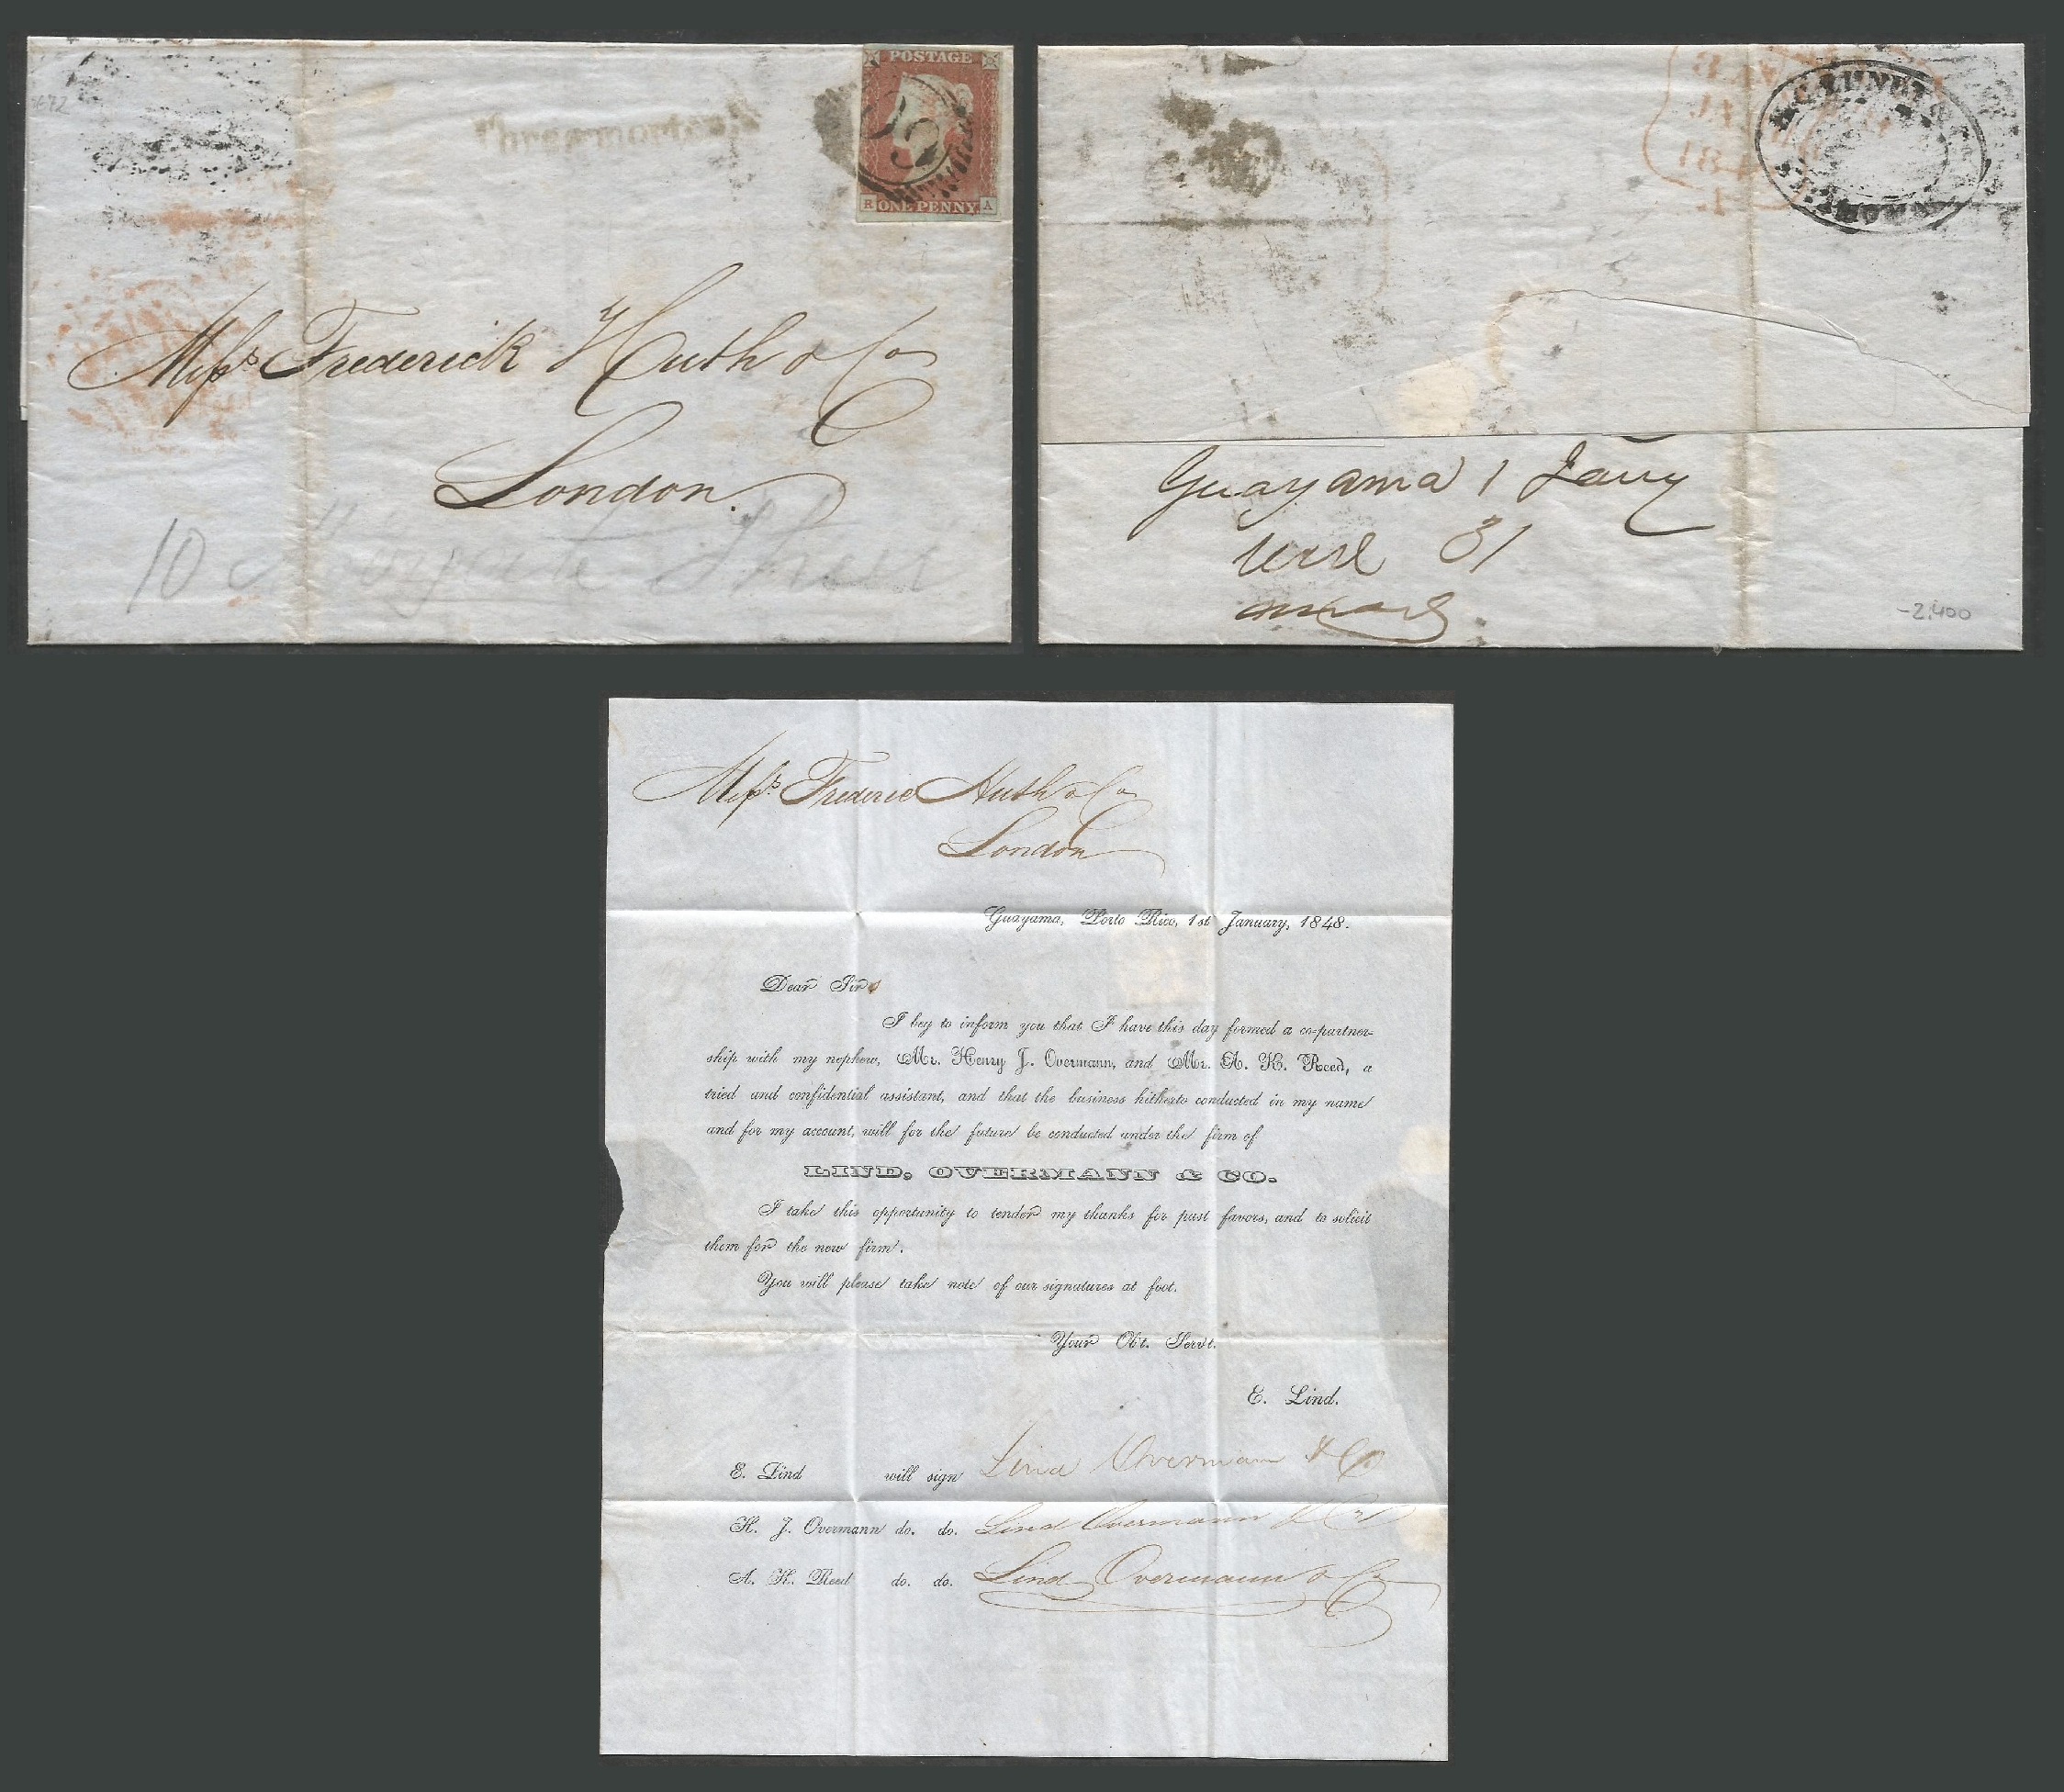 POSTAGE
ONE PENNY
R A
Messrs. Frederick Huth & Co
London.
10 Moorgate Street
ST. THOMAS
Guayama 1 Jany
31
-2,400
Messrs. Frederic Huth & Co
London
Guayama, Porto Rico, 1st January, 1848.
Dear Sirs
I beg to inform you that I have this day formed a co-partner-
ship with my nephew, Mr. Henry J. Overmann, and Mr. A. K. Reed, a
tried and confidential assistant, and that the business hitherto conducted in my name
and for my account, will for the future be conducted under the firm of
LIND, OVERMANN & CO.
I take this opportunity to tender my thanks for past favors, and to solicit
them for the new firm.
You will please take note of our signatures at foot.
Your Obt. Servt.
E. Lind.
E. Lind will sign Lind Overmann & Co
H. J. Overmann do. do. Lind Overmann & Co
A. K. Reed do. do. Lind Overmann & Co